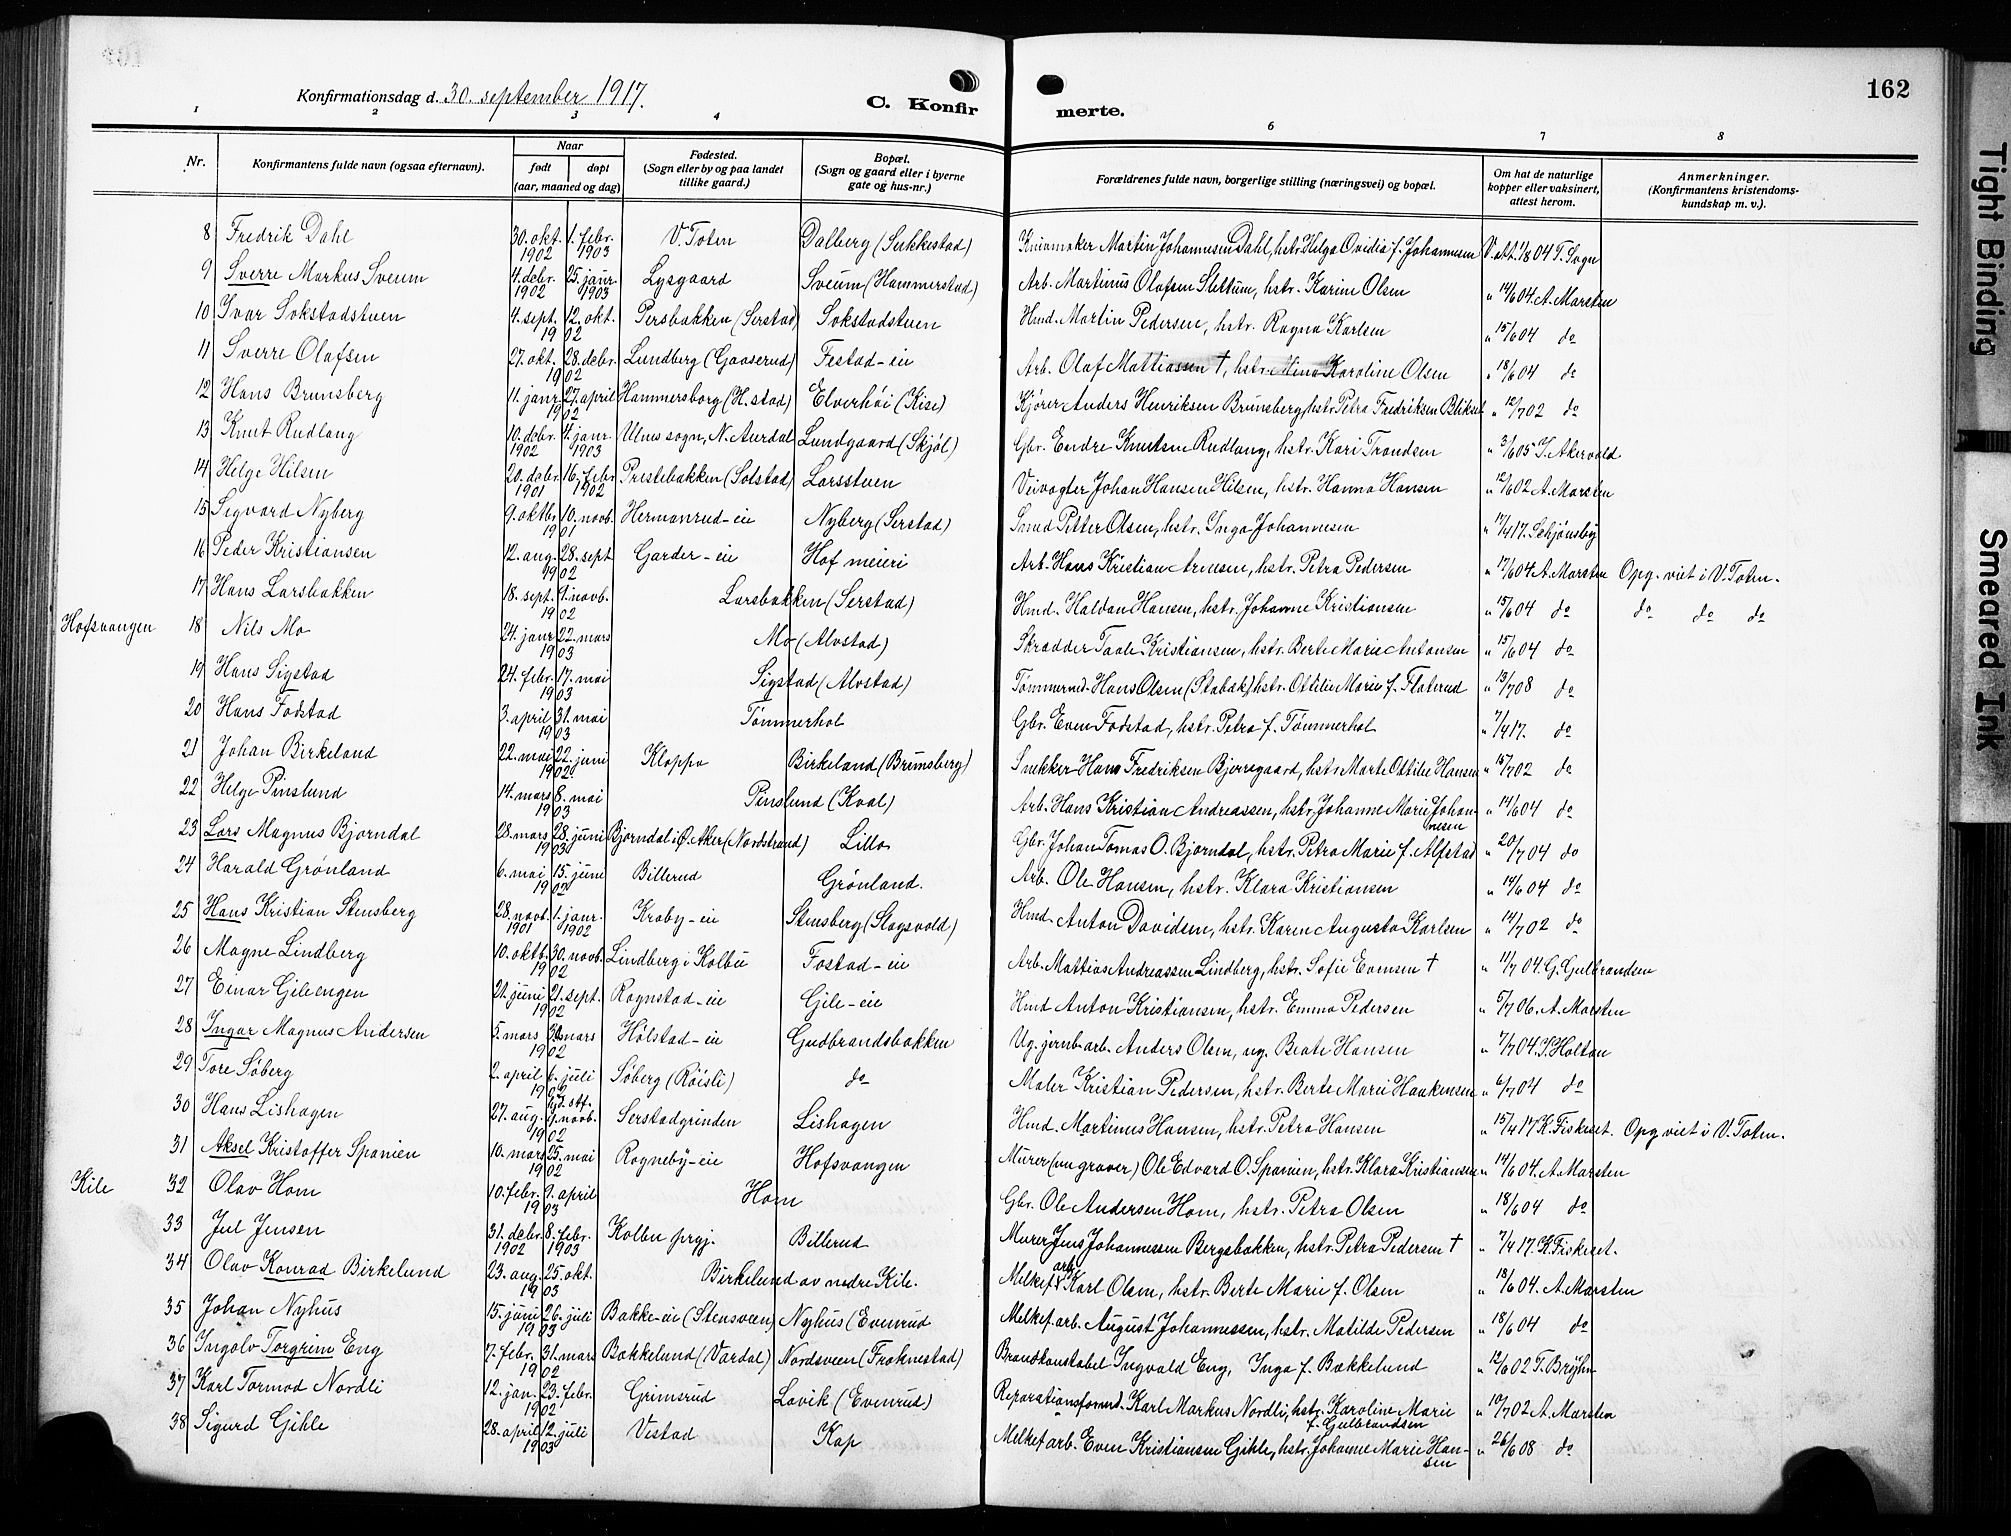 Konfirmationsdag d. 30. september 1917.
C. Konfirmerte.
162
1 2 3 4 6 7 8
Nr. Konfirmantens fulde navn (ogsaa efternavn). Naar født døpt (aar, maaned og dag) Fødested. (Sogn eller by og paa landet tillike gaard.) Bopæl. (Sogn og gaard eller i byerne gate og hus-nr.) Forældrenes fulde navn, borgerlige stilling (næringsvei) og bopæl. Om hat de naturlige kopper eller vaksinert, attest herom. Anmerkninger. (Konfirmantens kristendomskundskap m. v.).
8 Fredrik Dahl 30. okt. 1902 1. febr. 1903 V. Toten Dalberg (Sukkestad) Martin Johannesen Dahl, hstr. Helga Ovidia f. Johannesen V. att. 1/8 04 T. Sogn
9 Sverre Markus Sveum 4. debr. 1902 25. janr. 1903 Lysgaard Sveum (Hammerstad) Arb. Martinus Olafsen Slettum, hstr. Karine Olsen " 14/6 04. A. Marsten
10 Ivar Sokstadstuen 4. sept. 12. okt. 1902 Persbakken (Serstad) Sokstadstuen Hmd. Martin Pedersen, hstr. Ragna Karlsen " 15/6 04 do
11 Sverre Olafsen 27. okt. 28. debr. 1902 Lundberg (Gaaserud) Festad-eie Arb. Olaf Mattiassen †, hstr. Mina Karoline Olsen " 18/6 04 do
12 Hans Brunsberg 11. janr. 27. april 1902 Hammersborg (H.stad) Elverhøi (Kise) Kjører Anders Henriksen Brunsberg, hstr. Petra Fredriksen Blikset " 12/7 02 do
13 Knut Rudlang 10. debr. 1902 4. janr. 1903 Ulnes sogn, N. Aurdal Lundgaard (Skjøl) Gbr. Endre Knutsen Rudlang, hstr. Kari Trondsen " 3/6 05 I. Akervold
14 Helge Hilsen 20. debr. 1901 16. febr. 1902 Prestebakken (Sotstad) Larsstuen Veivogter Johan Hansen Hilsen, hstr. Hanna Hansen " 12/6 02 A. Marsten
15 Sigvard Nyberg 9. oktbr. 10. novb. 1901 Hermanrud-eie Nyberg (Serstad) Smed Petter Olsen, hstr. Inga Johannesen " 12/4 17. Schjønsby
16 Peder Kristiansen 12. aug. 28. sept 1902 Garder-eie Hof meieri Arb. Hans Kristian Arnesen, hstr. Petra Pedersen " 17/6 04 A. Marsten Opg. viet i V. Toten.
17 Hans Larsbakken 18. sept. 9. novb. 1902 Larsbakken (Serstad) Hmd. Haldan Hansen, hstr. Johanne Kristiansen " 15/6 04 do do do do
Hofsvangen 18 Nils Mo 24. janr. 22. mars 1903 Mo (Alvstad) Skradder Taale Kristiansen, hstr. Berte Marie Antonsen " 15/6 04 do
19 Hans Sigstad 24. febr. 17. mai 1903 Sigstad (Alvstad) Tømmermd. Hans Olsen (Stabæk) hstr. Ottilie Marie f. Flaterud " 13/7 08 do
20 Hans Fodstad 3. april 31. mai 1903 Tømmerhol Gbr. Even Fodstad, hstr. Petra f. Tømmerhol " 7/4 17. do
21 Johan Birkeland 22. mai 22. juni 1902 Kloppa Birkeland (Brunsberg) Snekker Hans Fredriksen Bjerregaard, hstr. Marte Ottilie Hansen " 15/7 02 do
22 Helge Pinslund 14. mars 8. mai 1903 Pinslund (Kval) Arb. Hans Kristian Andreassen, hstr. Johanne Marie Johannesen " 14/6 04 do
23 Lars Magnus Bjørndal 28. mars 28. juni 1903 Bjørndal i Ø. Aker (Nordstrand) Lillo Gbr. Johan Tomas O. Bjørndal, hstr. Petra Marie f. Alfstad " 20/7 04 do
24 Harald Grønland 6. mai 15. juni 1902 Billerud Grønland. Arb. Ole Hansen, hstr. Klara Kristiansen " 14/6 04 do
25 Hans Kristian Stensberg 28. novb. 1901 1. janr. 1902 Kraby-eie Stensberg (Slagsvold) Hmd. Anton Davidsen, hstr. Karen Augusta Karlsen " 14/7 02 do
26 Magne Lindberg 10. oktb. 30. novb. 1902 Lindberg i Kolbu Fostad-eie Arb. Mattias Andreassen Lindberg, hstr. Sofie Evensen † " 11/7 04. G. Gulbrandsen
27 Einar Gileengen 21. juni 21. sept. 1902 Rognstad-eie Gile-eie Hmd Anton Kristiansen, hstr. Emma Pedersen " 5/7 06. A. Marsten
28 Ingar Magnus Andersen 5. mars 30. mars 1902 Hølstad-eie Gudbrandsbakken Ug. jernb. arb. Anders Olsen, ug. Beate Hansen " 7/7 04. I. Holtan
29 Tore Søberg 2. april 6. juli 1902 Søberg (Røisli) do Maler Kristian Pedersen, hstr. Berte Marie Haakensen " 6/7 04 do
30 Hans Lishagen 27. aug. 9. novb. 1902 Serstadgrinden Lishagen Hmd. Martinus Hansen, hstr. Petra Hansen " 15/4 17 K. Fiskeset. Opg. viet i V. Toten.
31 Aksel Kristoffer Spanien 10. mars 25. mai 1902 Rogneby-eie Hofsvangen Murer (nu graver) Ole Edvard O. Spanien, hstr. Klara Kristiansen " 14/6 04. A. Marsten
Kile 32 Olav Hom 10. febr. 9. april 1903 Hom Gbr. Ole Andersen Hom, hstr. Petra Olsen " 18/6 04 do
33 Jul Jensen 31. debr. 1902 8. febr. 1903 Kolbu prgj. Billerud Murer Jens Johannessen Bergsbakken, hstr. Petra Pedersen † " 7/4 17. K. Fiskeset.
34 Olav Konrad Birkelund 23. aug. 25. okt. 1903 Birkelund av nedre Kile. Melkef. arb. Karl Olsen, hstr. Berte Marie f. Olsen " 18/6 04. A. Marsten
35 Johan Nyhus 15. juni 26. juli 1903 Bakke-eie (Stensveen) Nyhus (Evenrud Melkef. arb. August Johannessen, hstr. Matilde Pedersen " 18/6 04 do
36 Ingolv Torgrim Eng 7. febr. 31. mars 1902 Bakkelund (Vardal) Nordsveen (Froknestad) Brandkonstabel Ingvald Eng, Inga f. Bækkelund " 12/6 02 T. Bryhn
37 Karl Tormod Nordli 12. jan. 23. febr. 1902 Grimsrud Løvik (Evenrud) Reparationsformd. Karl Markus Nordli, hstr. Karoline Marie f. Gulbrandsen " 10/7 02 A. Marsten
38 Sigurd Gihle 28. april 12. juli 1903 Vestad Kap Melkef. arb. Even Kristiansen Gihle, hstr. Johanne Marie Hansen " 26/6 08 do
Tight Binding
Smeared Ink